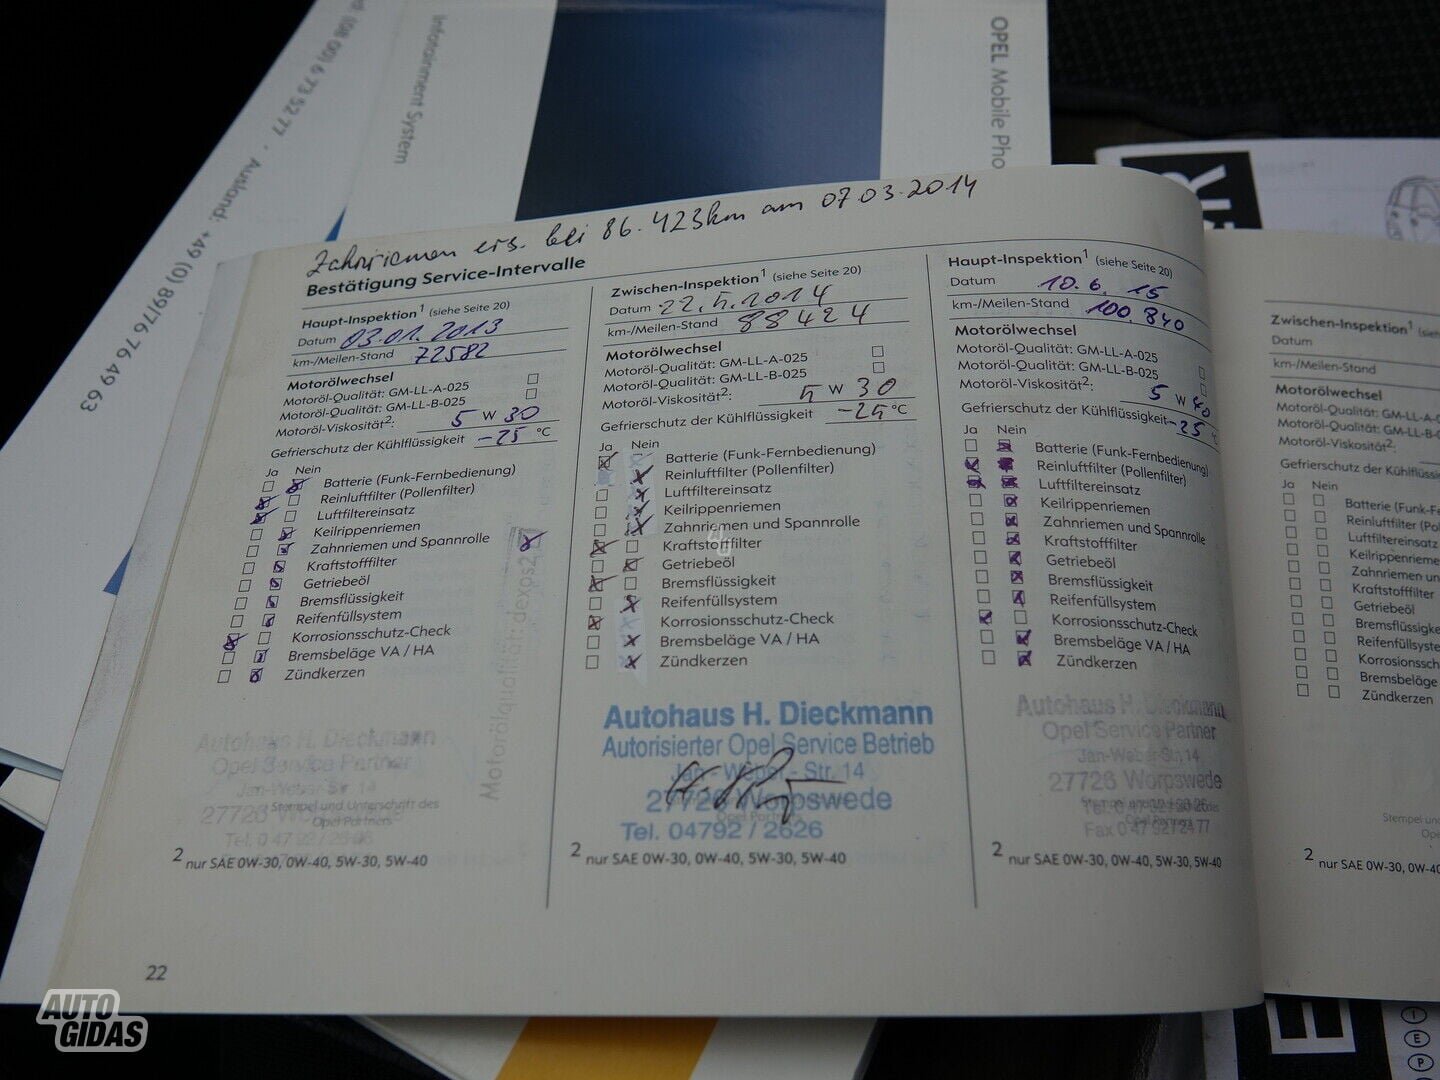 OPEL Mobile Pho
Infotainment System
(08 00) 6 73 52 77 · Ausland: +49 (0) 89/76 76 49 63
Zahnriemen ers. bei 86.423km am 07.03.2014
Bestätigung Service-Intervalle
Haupt-Inspektion¹ (siehe Seite 20)
Datum 03.01.2013
km-/Meilen-Stand 72582
Motorölwechsel
Motoröl-Qualität: GM-LL-A-025
Motoröl-Qualität: GM-LL-B-025
Motoröl-Viskosität²: 5 W 30
Gefrierschutz der Kühlflüssigkeit -25 °C
Ja Nein
Batterie (Funk-Fernbedienung)
Reinluftfilter (Pollenfilter)
Luftfiltereinsatz
Keilrippenriemen
Zahnriemen und Spannrolle
Kraftstofffilter
Getriebeöl
Bremsflüssigkeit
Reifenfüllsystem
Korrosionsschutz-Check
Bremsbeläge VA / HA
Zündkerzen
Motorölqualität: dexos2
Autohaus H. Dieckmann
Opel Service Partner
Jan-Weber-Str. 14
27726 Worpswede
Stempel und Unterschrift des
Opel Partners
Tel. 0 47 92 / 26 26
2 nur SAE 0W-30, 0W-40, 5W-30, 5W-40
Zwischen-Inspektion¹ (siehe Seite 20)
Datum 22.5.2014
km-/Meilen-Stand 88424
Motorölwechsel
Motoröl-Qualität: GM-LL-A-025
Motoröl-Qualität: GM-LL-B-025
Motoröl-Viskosität²: 5 W 30
Gefrierschutz der Kühlflüssigkeit -25 °C
Ja Nein
Batterie (Funk-Fernbedienung)
Reinluftfilter (Pollenfilter)
Luftfiltereinsatz
Keilrippenriemen
Zahnriemen und Spannrolle
Kraftstofffilter
Getriebeöl
Bremsflüssigkeit
Reifenfüllsystem
Korrosionsschutz-Check
Bremsbeläge VA / HA
Zündkerzen
Autohaus H. Dieckmann
Autorisierter Opel Service Betrieb
Jan - Weber - Str. 14
27726 Worpswede
Opel Partners
Tel. 04792 / 2626
2 nur SAE 0W-30, 0W-40, 5W-30, 5W-40
Haupt-Inspektion¹ (siehe Seite 20)
Datum 10.6.15
km-/Meilen-Stand 100.840
Motorölwechsel
Motoröl-Qualität: GM-LL-A-025
Motoröl-Qualität: GM-LL-B-025
Motoröl-Viskosität²: 5 W 40
Gefrierschutz der Kühlflüssigkeit -25 °C
Ja Nein
Batterie (Funk-Fernbedienung)
Reinluftfilter (Pollenfilter)
Luftfiltereinsatz
Keilrippenriemen
Zahnriemen und Spannrolle
Kraftstofffilter
Getriebeöl
Bremsflüssigkeit
Reifenfüllsystem
Korrosionsschutz-Check
Bremsbeläge VA / HA
Zündkerzen
Autohaus H. Dieckmann
Opel Service Partner
Jan-Weber-Str. 14
27726 Worpswede
Tel. 0 47 92 / 26 26
Opel Partners
Fax 0 47 92 / 24 77
2 nur SAE 0W-30, 0W-40, 5W-30, 5W-40
Zwischen-Inspektion¹
Datum
km-/Meilen-Stand
Motorölwechsel
Motoröl-Qualität: GM-LL-A
Motoröl-Qualität: GM-LL-B
Motoröl-Viskosität²:
Gefrierschutz der Kühlflüssi
Ja Nein
Batterie (Funk-F
Reinluftfilter (Po
Luftfiltereinsatz
Keilrippenrieme
Zahnriemen un
Kraftstofffilter
Getriebeöl
Bremsflüssigke
Reifenfüllsyste
Korrosionssch
Bremsbeläge
Zündkerzen
Stempel und
2 nur SAE 0W-30, 0W-40
22
AUTO
GIDAS